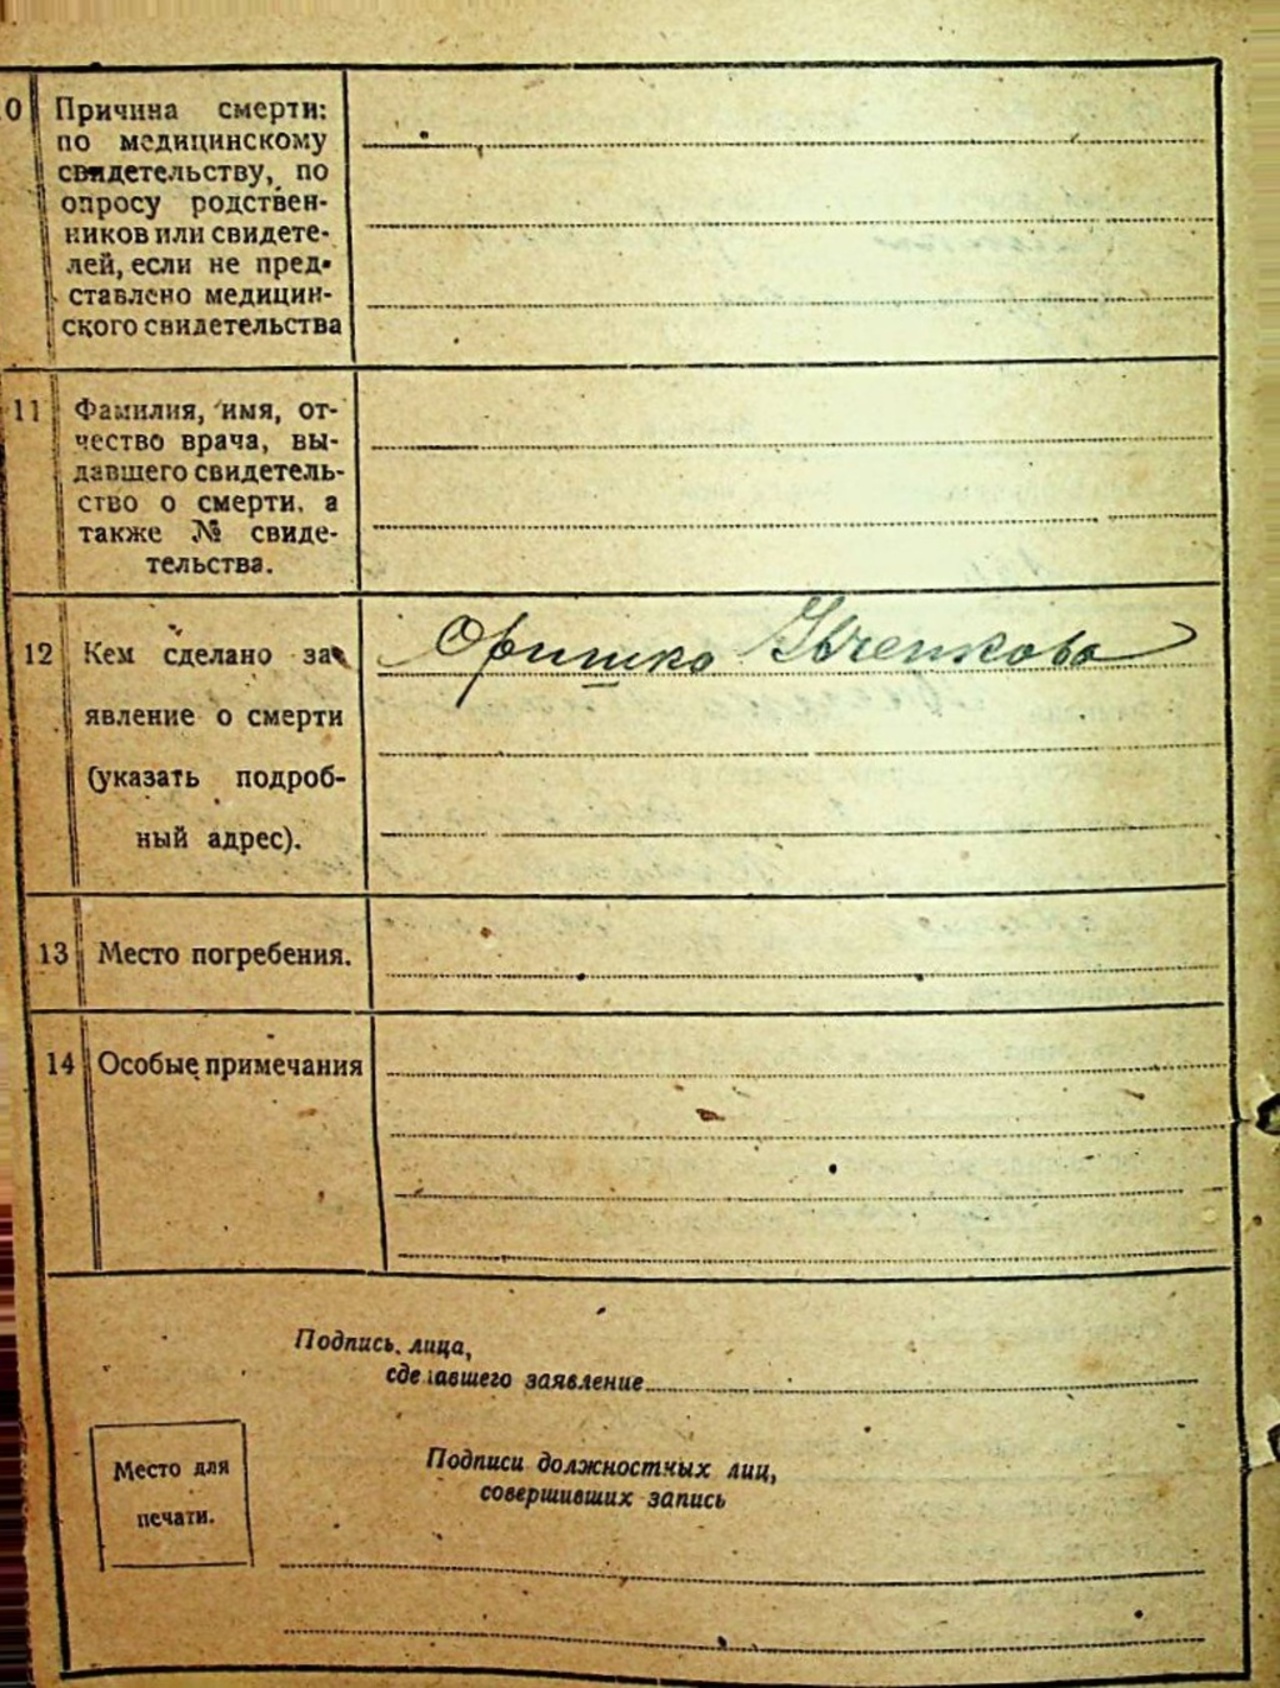 0 Причина смерти:
по медицинскому
свидетельству, по
опросу родствен-
ников или свидете-
лей, если не пред-
ставлено медицин-
ского свидетельства
11 Фамилия, имя, от-
чество врача, вы-
давшего свидетель-
ство о смерти, а
также № свиде-
тельства.
12 Кем сделано за-
явление о смерти
(указать подроб-
ный адрес).
Оришко
13 Место погребения.
14 Особые примечания
Подпись лица,
сделавшего заявление
Место для
печати.
Подписи должностных лиц,
совершивших запись